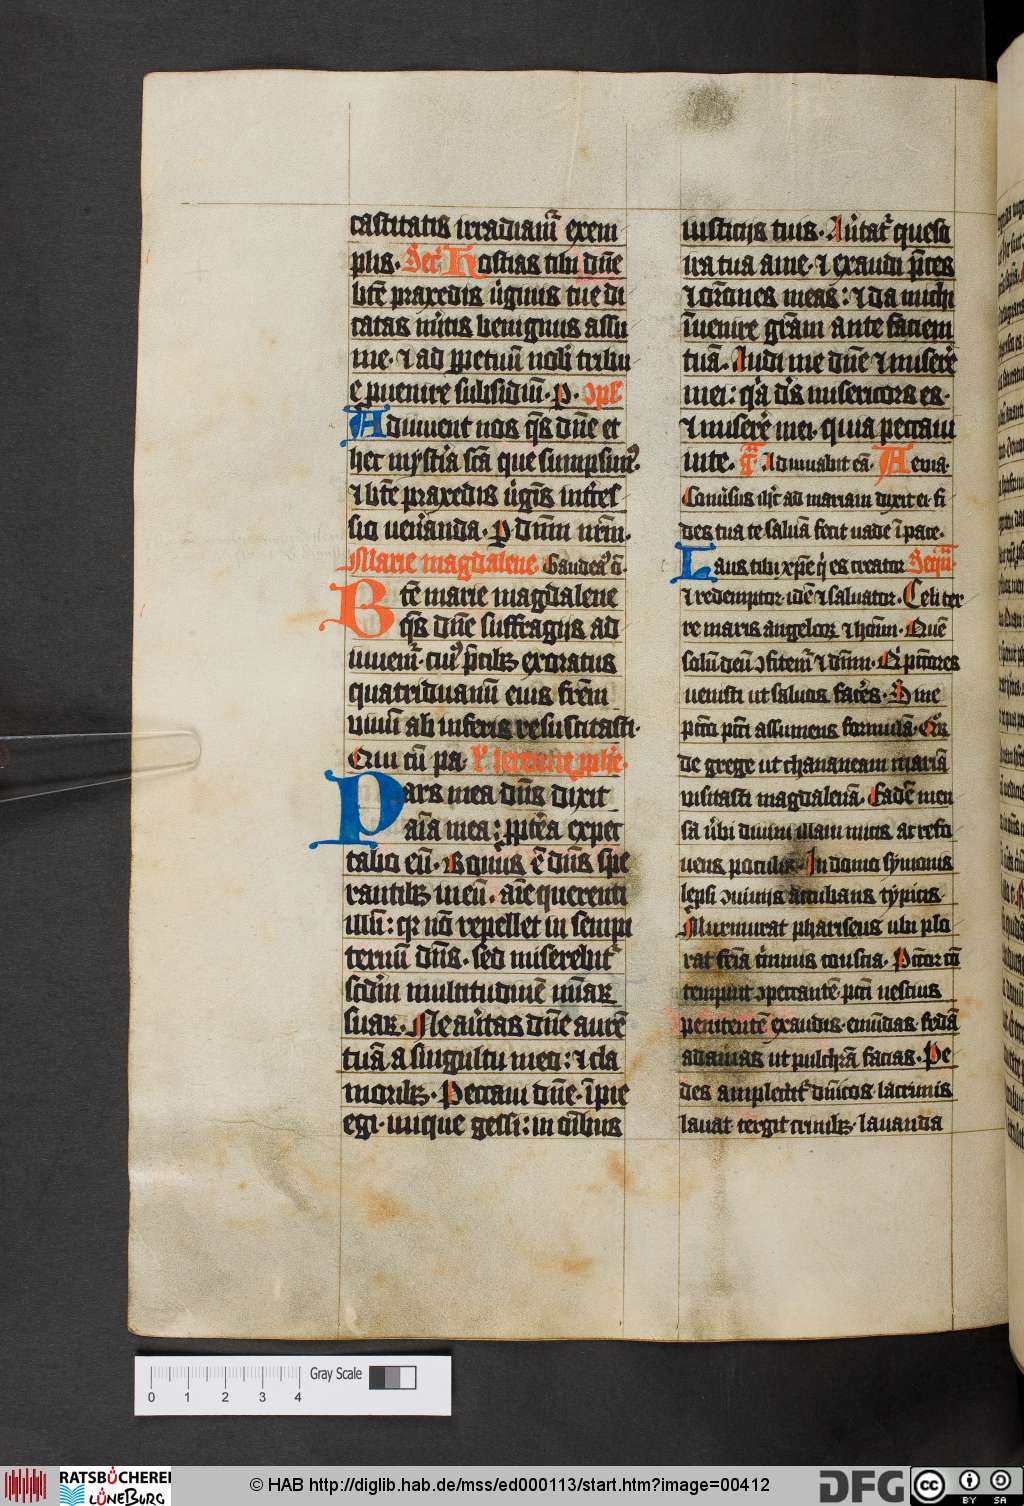 castitatis irradiam̄ exem
plis. Secͬ Hostias tibi dn̄e
btē praxedis v̓ginis tue di
catas mͥtis benignus assu
me. ⁊ ad ꝑpetuū nob̓ tribu
e ꝓuenire subsidiū. P. ꝯplē
Adiuuent nos qs̄ dn̄e et
hec mystͥa scā que sumpsimꝰ
⁊ btē praxedis v̓gīs int̓ces
sio ven̓anda. P dn̄m nr̄m.
Marie magdalene Gaudeaꝰ ō.
Btē marie magdalene
qs̄ dn̄e suffragijs ad
iuuem̓. cuiꝰ p̄cibꝫ exoratus
quatriduanū eius frēm
viuū ab inferis resuscitasti.
Qui cū pa. lͨ ieremie ꝓph̓e.
Pars mea dn̄s dixit
aīa mea: ꝓpt̓ea expec
tabo eū. Bonus ē dn̄s spe
rantibꝫ in eū. aīe querenti
illū: qꝛ nō repellet in sempi
ternū dn̄s. sed miserebitͬ
scd̓m multitudinē mīaꝝ
suaꝝ. Ne au̓tas dn̄e aurē
tuā a singultu meo: ⁊ cla
moribꝫ. Peccaui dn̄e. īpie
egi. inique gessi: in oībus
iusticijs tuis. Au̓tatͬ queso
ira tua a me. ⁊ exaudi p̄ces
⁊ or̄ones meas: ⁊ da michi
īuenire grām ante faciem
tuā. Audi me dn̄e ⁊ miser̓e
mei: qͥa ds̄ misericors es.
⁊ miser̓e mei. quia peccaui
in te. gͣ Adiuuabit eā. Aeuia.
Conu̓sus ih̓c ad mariam dixit ei. fi
des tua te saluā fecit vade ī pace.
Laus tibi xp̄e qͥ es creator Seqū
⁊ redemptor. idē ⁊ saluator. Celi ter
re maris angeloꝝ ⁊ hoīm. Quē
solū deū ꝯfitem̓ ⁊ dn̄m. Qͥ pctōres
venisti ut saluos fac̓es. Sine
pctō pctī assumens formulā. Quoꝝ
de grege ut chananeam mariā
visitasti magdalenā. Eadē men
sa v̓bi diuini illam micis. ac refo
uens poculis. In domo symonis
lep̄si ꝯuiuijs accubans typicis.
Murmurat phariseus ubi plo
rat fēīa c̓minis conscia. Pctōr cō
tempnit ꝯpeccantē. pctī nescius
penitentē exaudis. emūdas fedā
adamas ut pulchrā facias. Pe
des amplectitͬ dn̄icos. lacrimis
lauat. tergit crinibꝫ. lauanda
Gray Scale
0 1 2 3 4
RATSBÜCHEREI
LÜNEBURG
© HAB http://diglib.hab.de/mss/ed000113/start.htm?image=00412
DFG
cc BY SA